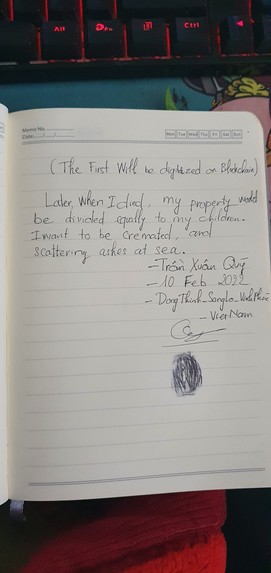 Alt
Fn
Ctrl
Memo No.
Date / /
Mon Tue Wed Thu Fri Sat Sun
(The First Will be digitized on Blockchain)
Later, When I died, my property would
be divided equally to my children.
I want to be cremated, and
scattering ashes at sea.
- Trần Xuân Quý
- 10 Feb 2022
- Dong Thinh - Songlo - Vinh Phúc
- Viet Nam